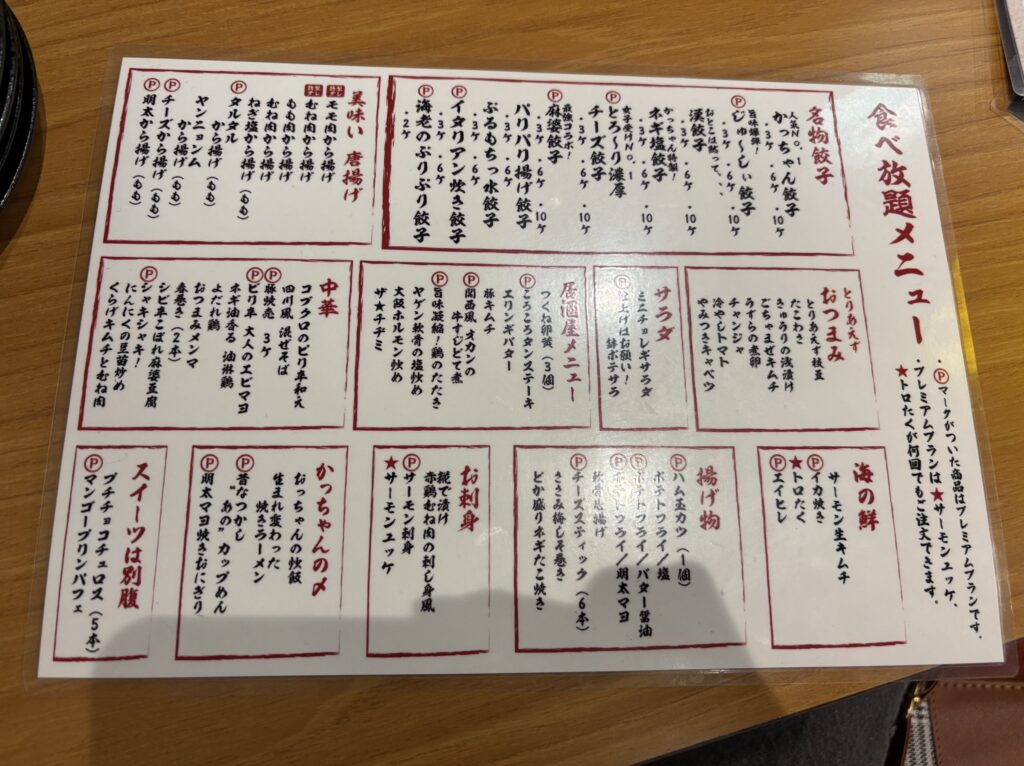 食べ放題メニュー
・Ⓟマークがついた商品はプレミアムプランです。
・プレミアムプランは★サーモンユッケ、
★トロたくが何回でもご注文できます。
名物餃子
人気No.1
かっちゃん餃子
・3ケ ・6ケ ・10ケ
旨味爆弾!
Ⓟじゅ〜しぃ餃子
・3ケ ・6ケ
おとこは黙って、、、
漢餃子
・3ケ ・6ケ ・10ケ
かっちゃん特製!
ネギ塩餃子
・3ケ ・6ケ ・10ケ
女子受けNo.1
とろ〜り濃厚
チーズ餃子
・3ケ ・6ケ ・10ケ
最強コラボ!
Ⓟ麻婆餃子
・3ケ ・6ケ ・10ケ
パリパリ揚げ餃子
・3ケ ・6ケ ・10ケ
ぷるもちっ水餃子
・3ケ ・6ケ
Ⓟイタリアン炊き餃子
・3ケ ・6ケ
Ⓟ海老のぷりぷり餃子
・2ケ
美味い 唐揚げ
モモ肉から揚げ
むね肉から揚げ
もも肉から揚げ
むね肉から揚げ
ねぎ塩から揚げ
Ⓟタルタル
から揚げ(もも)
ヤンニョンム
から揚げ(もも)
Ⓟチーズから揚げ(もも)
Ⓟ明太から揚げ(もも)
とりあえず
おつまみ
とりあえず枝豆
たこわさ
きゅうりの浅漬け
ごちゃまぜキムチ
うずらの煮卵
チャンジャ
冷やしトマト
やみつきキャベツ
サラダ
ミニチョレギサラダ
Ⓟ仕上げはお願い!
鉢ポテサラ
居酒屋メニュー
つくね卵黄(3個)
Ⓟころころタンステーキ
エリンギバター
豚キムチ
Ⓟ関西風 オカンの
牛すじどて煮
Ⓟ旨味凝縮!鶏のたたき
ヤゲン軟骨の塩炒め
大阪ホルモン炒め
ザ★チヂミ
中華
コブクロのピリ辛和え
四川風 混ぜそば
Ⓟ豚焼売 3ケ
Ⓟピリ辛 大人のエビマヨ
ネギ油香る 油淋鶏
よだれ鶏
おつまみメンマ
春巻き(2本)
シビ辛こぼれ麻婆豆腐
Ⓟシャキシャキ!
にんにくの豆苗炒め
くらげキムチとむね肉
海の鮮
サーモン生キムチ
Ⓟイカ焼き
★トロたく
Ⓟエイヒレ
揚げ物
Ⓟハム玉カツ(1個)
ポテトフライ/塩
Ⓟポテトフライ/バター醤油
Ⓟポテトフライ/明太マヨ
軟骨唐揚げ
Ⓟチーズスティック(6本)
ささみ梅しそ巻き
どか盛りネギたこ焼き
お刺身
糀で漬け
赤鶏むね肉の刺し身風
Ⓟサーモン刺身
★サーモンユッケ
かっちゃんの〆
おっちゃんの炊飯
生まれ変わった
焼きラーメン
Ⓟ昔なつかし
“あの”カップめん
Ⓟ明太マヨ焼きおにぎり
スイーツは別腹
プチチョコチュロス(5本)
Ⓟマンゴープリンパフェ